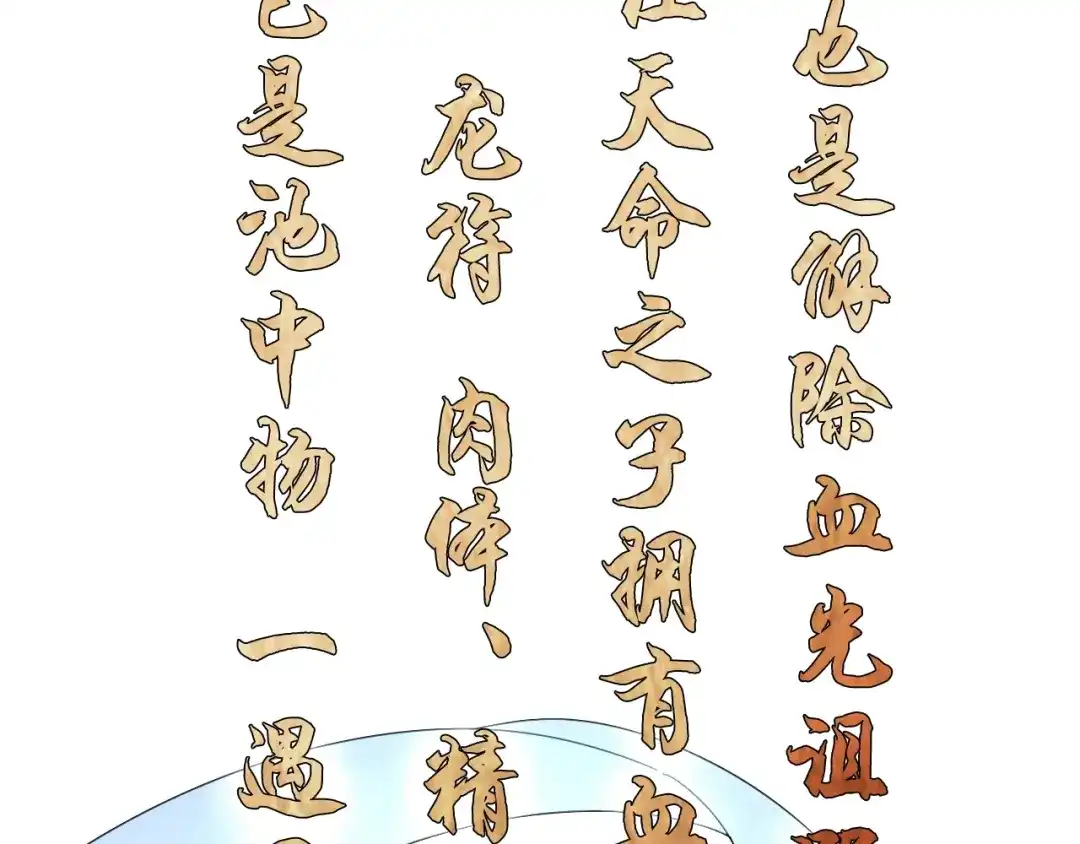 也是解除血先诅
天命之子拥有血
龙符 肉体、精
是池中物 一遇